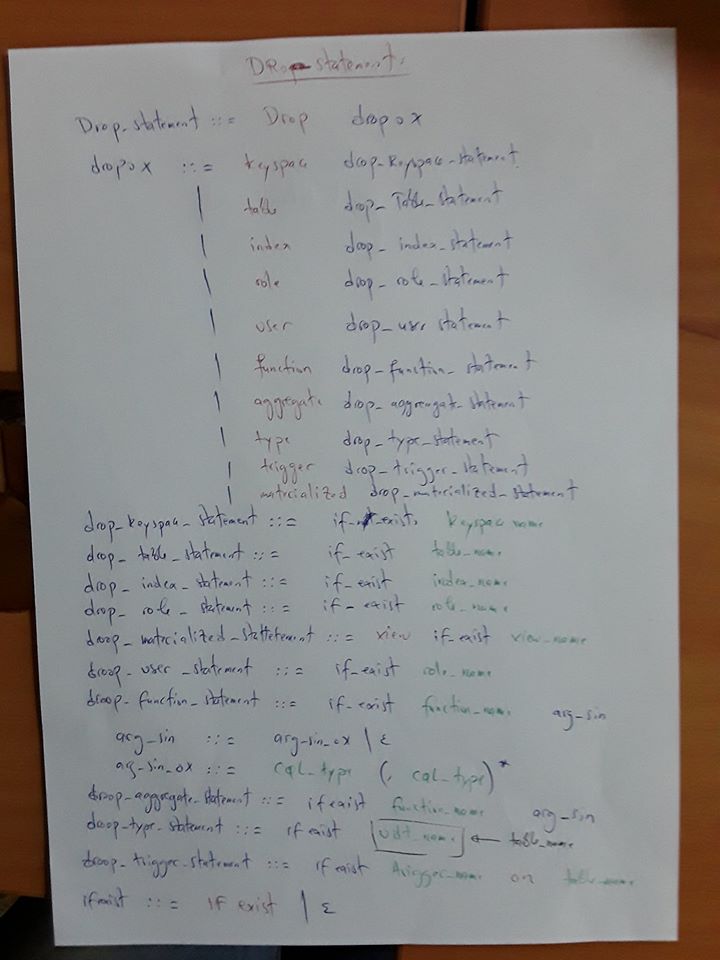 DRop statement:
Drop_statement ::= Drop dropox
dropox ::= keyspac drop_Keyspac_statement
| table drop_Table_statement
| index drop_index_statement
| role drop_role_statement
| user drop_user statement
| function drop_function_statement
| aggregate drop_aggregate_statement
| type drop_type_statement
| trigger drop_trigger_statement
| matrcialized drop_matrcialized_statement
drop_keyspac_statement ::= if_exist. keyspac name
drop_table_statement ::= if_exist table_name
drop_index_statement ::= if_exist index_name
drop_role_statement ::= if_exist role_name
drop_matrcialized_stattetement ::= view if_exist view_name
drop_user_statement ::= if_exist role_name
drop_function_statement ::= if_exist function_name arg_sin
arg_sin ::= arg_sin_ox | ε
ag_sin_ox ::= cql_type (, cql_type)*
drop_aggregate_statement ::= if exist function_name arg_sin
drop_type_statement ::= if exist udt_name ← table_name
drop_trigger_statement ::= if exist trigger_name on table_name
if exist ::= IF exist | ε